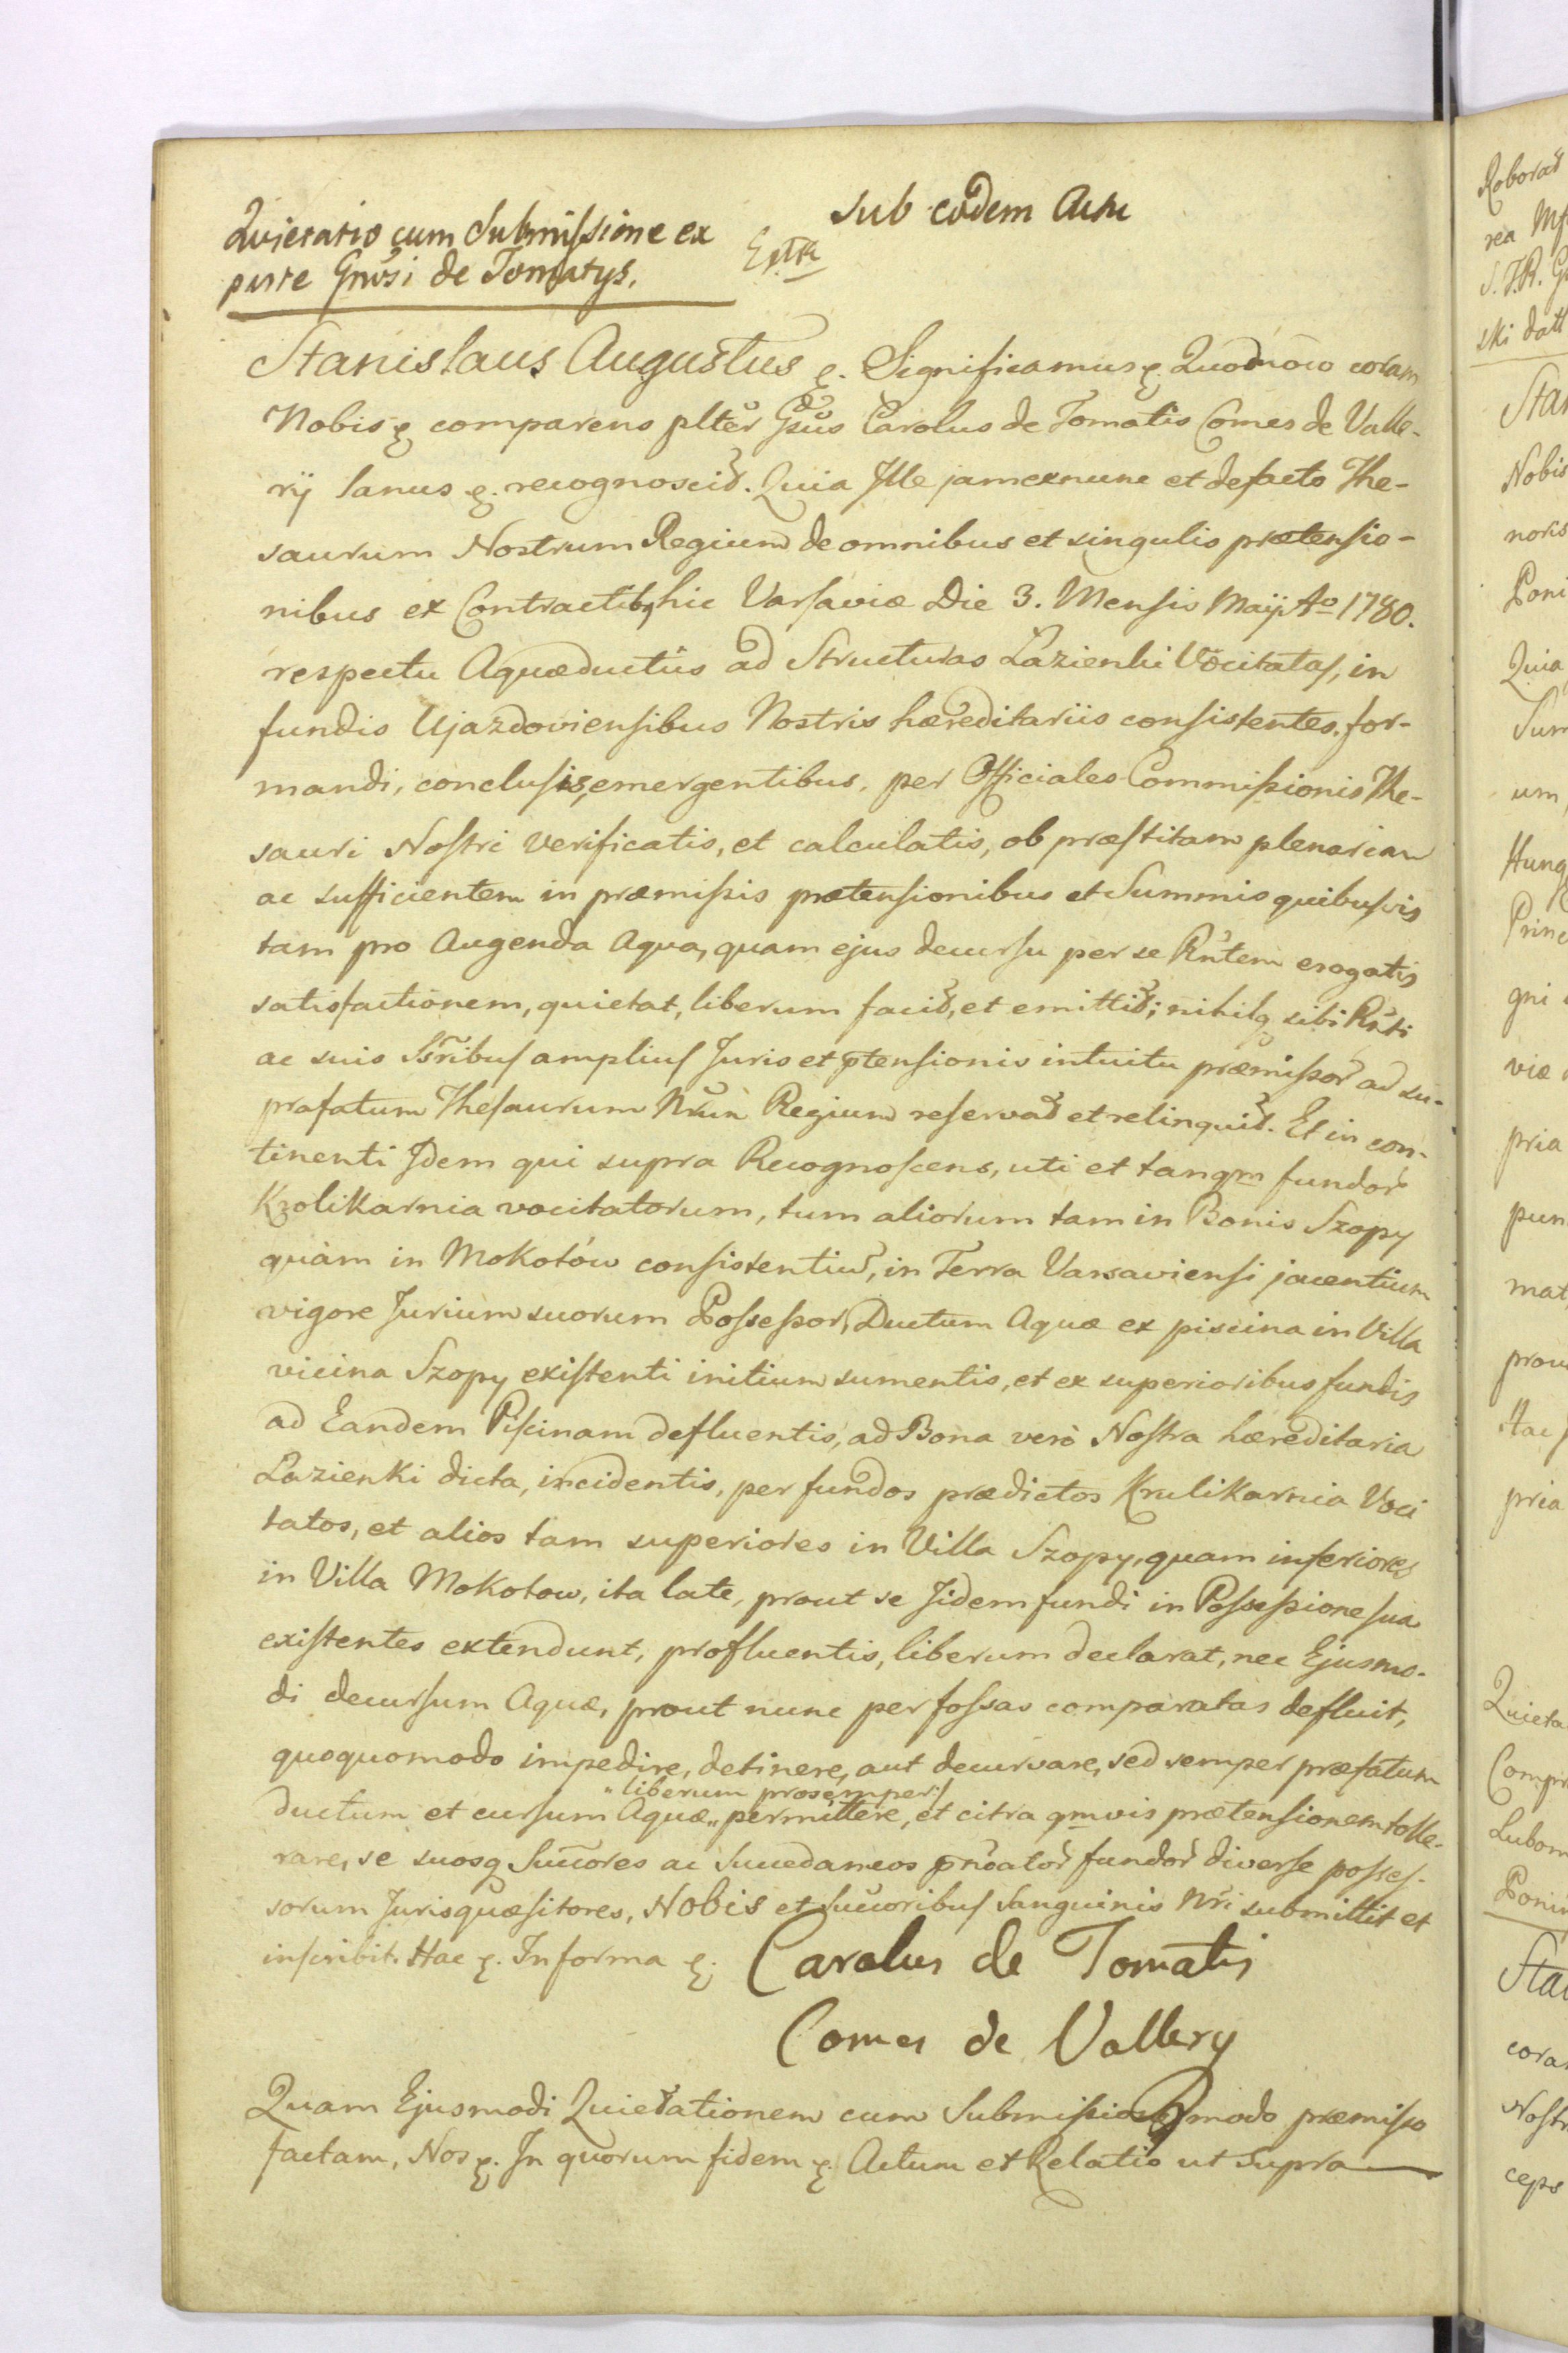 Sub eodem Actu
Quietatio cum Submissione ex
parte Gnosi de Tomatys.
Stanislaus Augustus &. Significamus &. Quomodo coram
Nobis & comparens plter Gsus Carolus de Tomatis Comes de Valle-
rij sanus &. recognoscit. Quia Ille jam exnunc et defacto The-
saurum Nostrum Regium de omnibus et singulis prætensio-
nibus ex Contractibq hic Varsaviæ Die 3. Mensis Maij Ao 1780.
respectu Aquæductûs ad Structuras Łazienki Vocitatas, in
fundis Ujazdoviensibus Nostris hæreditariis consistentes, for-
mandi, conclusis, emergentibus, per Officiales Commissionis The-
sauri Nostri verificatis, et calculatis, ob præstitam plenariam
ac sufficientem in præmissis prætensionibus et Summis quibusvis
tam pro Augenda Aqua, quam ejus decursu per se Rñtem erogatis
satisfactionem, quietat, liberum facit, et emittit; nihilq sibi Rñti
ac suis Ssribus amplius Juris et ptensionis intuitu præmissor ad su-
prafatum Thesaurum Nrum Regium reservat et relinquit. Et in con-
tinenti Idem qui supra Recognoscens, uti et tanqm fundor
Krolikarnia vocitatorum, tum aliorum tam in Bonis Szopy
quàm in Mokotów consistentium, in Terra Varsaviensi jacentium
vigore Jurium suorum Possessor, Ductum Aquæ ex piscina in Villa
vicina Szopy existenti initium sumentis, et ex superioribus fundis
ad Eandem Piscinam defluentis, ad Bona verò Nostra hæreditaria
Lazienki dicta, incidentis, per fundos prædictos Krulikarnia Voci
tatos, et alios tam superiores in Villa Szopy, quam inferiores
in Villa Mokotow, ita late, prout se Iidem fundi in Possessione sua
existentes extendunt, profluentis, liberum declarat, nec Ejusmo-
di decursum Aquæ, prout nunc per fossas comparatas defluit,
quoquomodo impedire, detinere, aut decurvare, sed semper præfatum
"liberum prosemper/
ductum et cursum Aquæ "permittere, et citra qmvis prætensionem tolle-
rare, se suosq Succores ac Succedaneos pñoator fundor diverse posses-
sorum Jurisquæsitores, Nobis et Succoribus Sanguinis Nri submittit et
inscribit. Hac &. In forma &. Carolus de Tomatis
Comes de Vallery
Quam Ejusmodi Quietationem cum Submissione modo præmisso
factam, Nos &. In quorum fidem &. Actum et Relatio ut Supra
Roborat
rea
S.J.R.
ski datt
Nobis
noris
Poni
Quia
Sum
um
Hung
Princ
gni
viæ
pria
pun
mat
prou
Hac
pria
Quieta
Compr
Lubom
Ponin
Stan
coram
Nostr
ceps